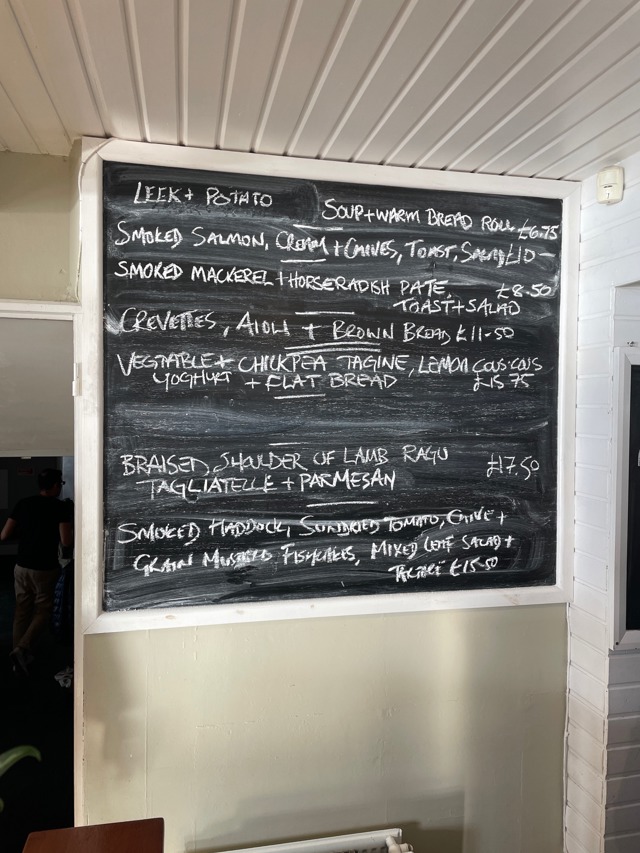 LEEK + POTATO SOUP + WARM BREAD ROLL £6.75
SMOKED SALMON, CREAM + CHIVES, TOAST, SALAD £10-
SMOKED MACKEREL + HORSERADISH PATE, £8.50
TOAST + SALAD
CREVETTES, AIOLI + BROWN BREAD £11-50
VEGTABLE + CHICKPEA TAGINE, LEMON COUS-COUS
YOGHURT + FLAT BREAD £15.75
BRAISED, SHOULDER OF LAMB RAGU £17.50
TAGLIATELLE + PARMESAN
SMOKED HADDOCK, SUNDRIED TOMATO, CHIVE +
GRAIN MUSTARD FISHCAKES, MIXED LEAF SALAD +
TARTARE £15-50